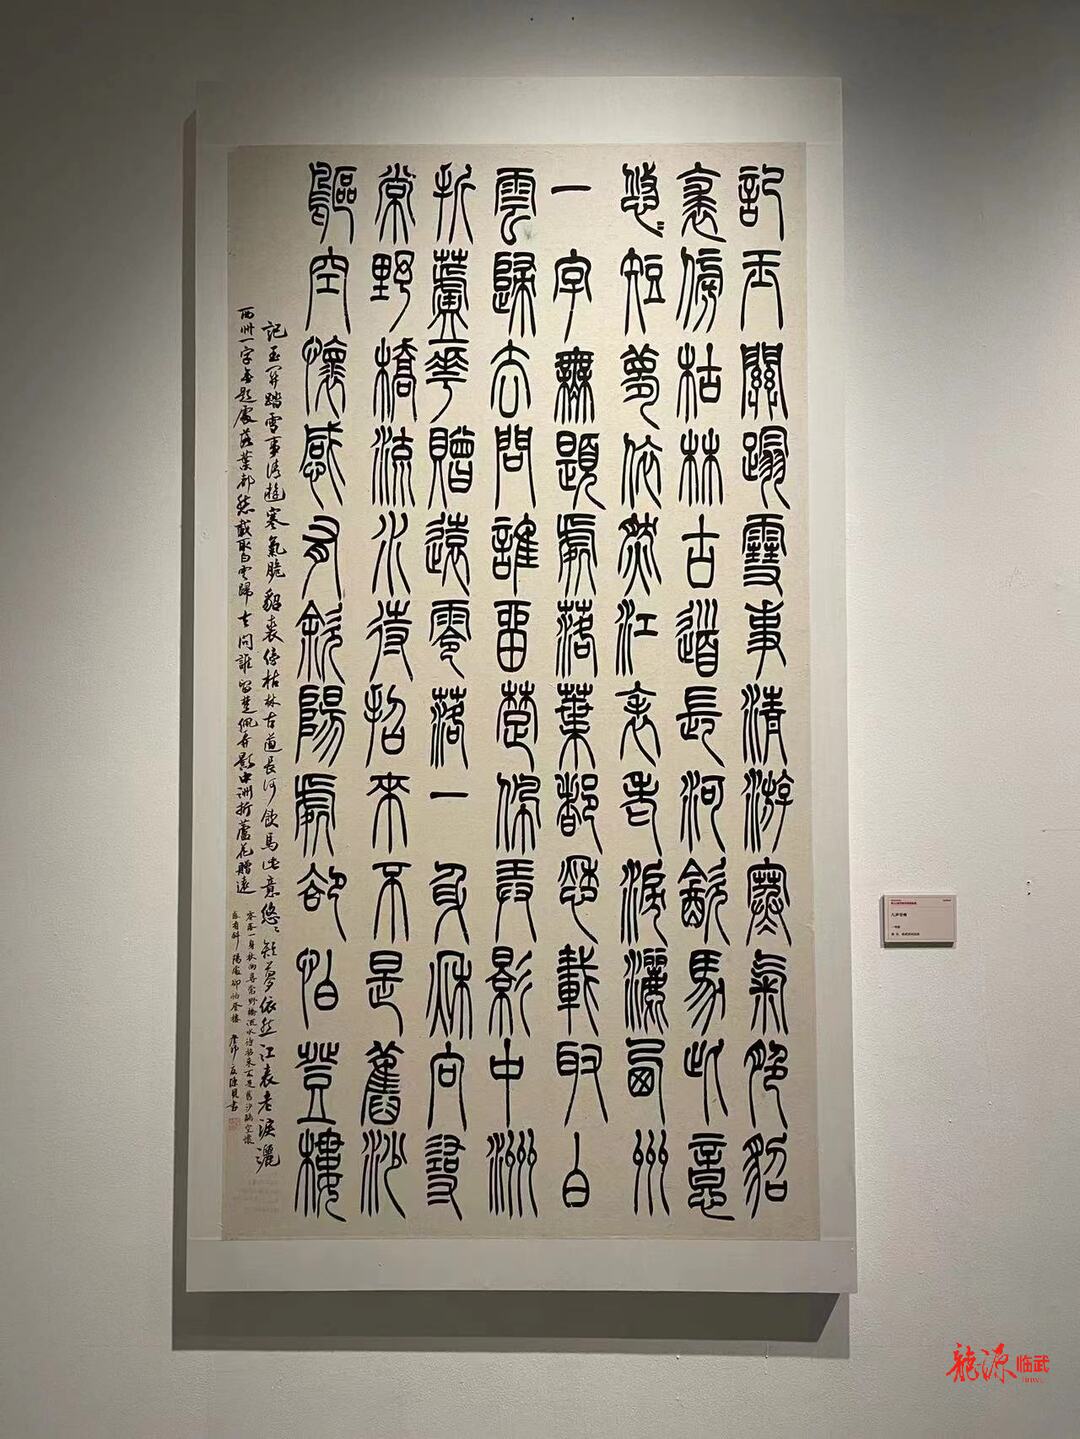 記玉關蹋雪事清游寒氣脆貂
裘傍枯林古道長河飲馬此意
悠〻短夢依然江表老淚灑西州
一字無題處落葉都愁載取白
雲歸去問誰留楚佩弄影中洲
折蘆華贈遠零落一身秋向尋
常野橋流水待招來不是舊沙
鷗空懷感有斜陽處卻怕登樓
記玉關踏雪事清遊寒氣脆貂裘傍枯林古道長河飲馬此意悠〻短夢依然江表老淚灑
西州一字無題處落葉都愁載取白雲歸去問誰留楚佩弄影中洲折蘆花贈遠
零落一身秋向尋常野橋流水待招來不是舊沙鷗空懷
感有斜陽處卻怕登樓 書
八声甘州
龍源临武